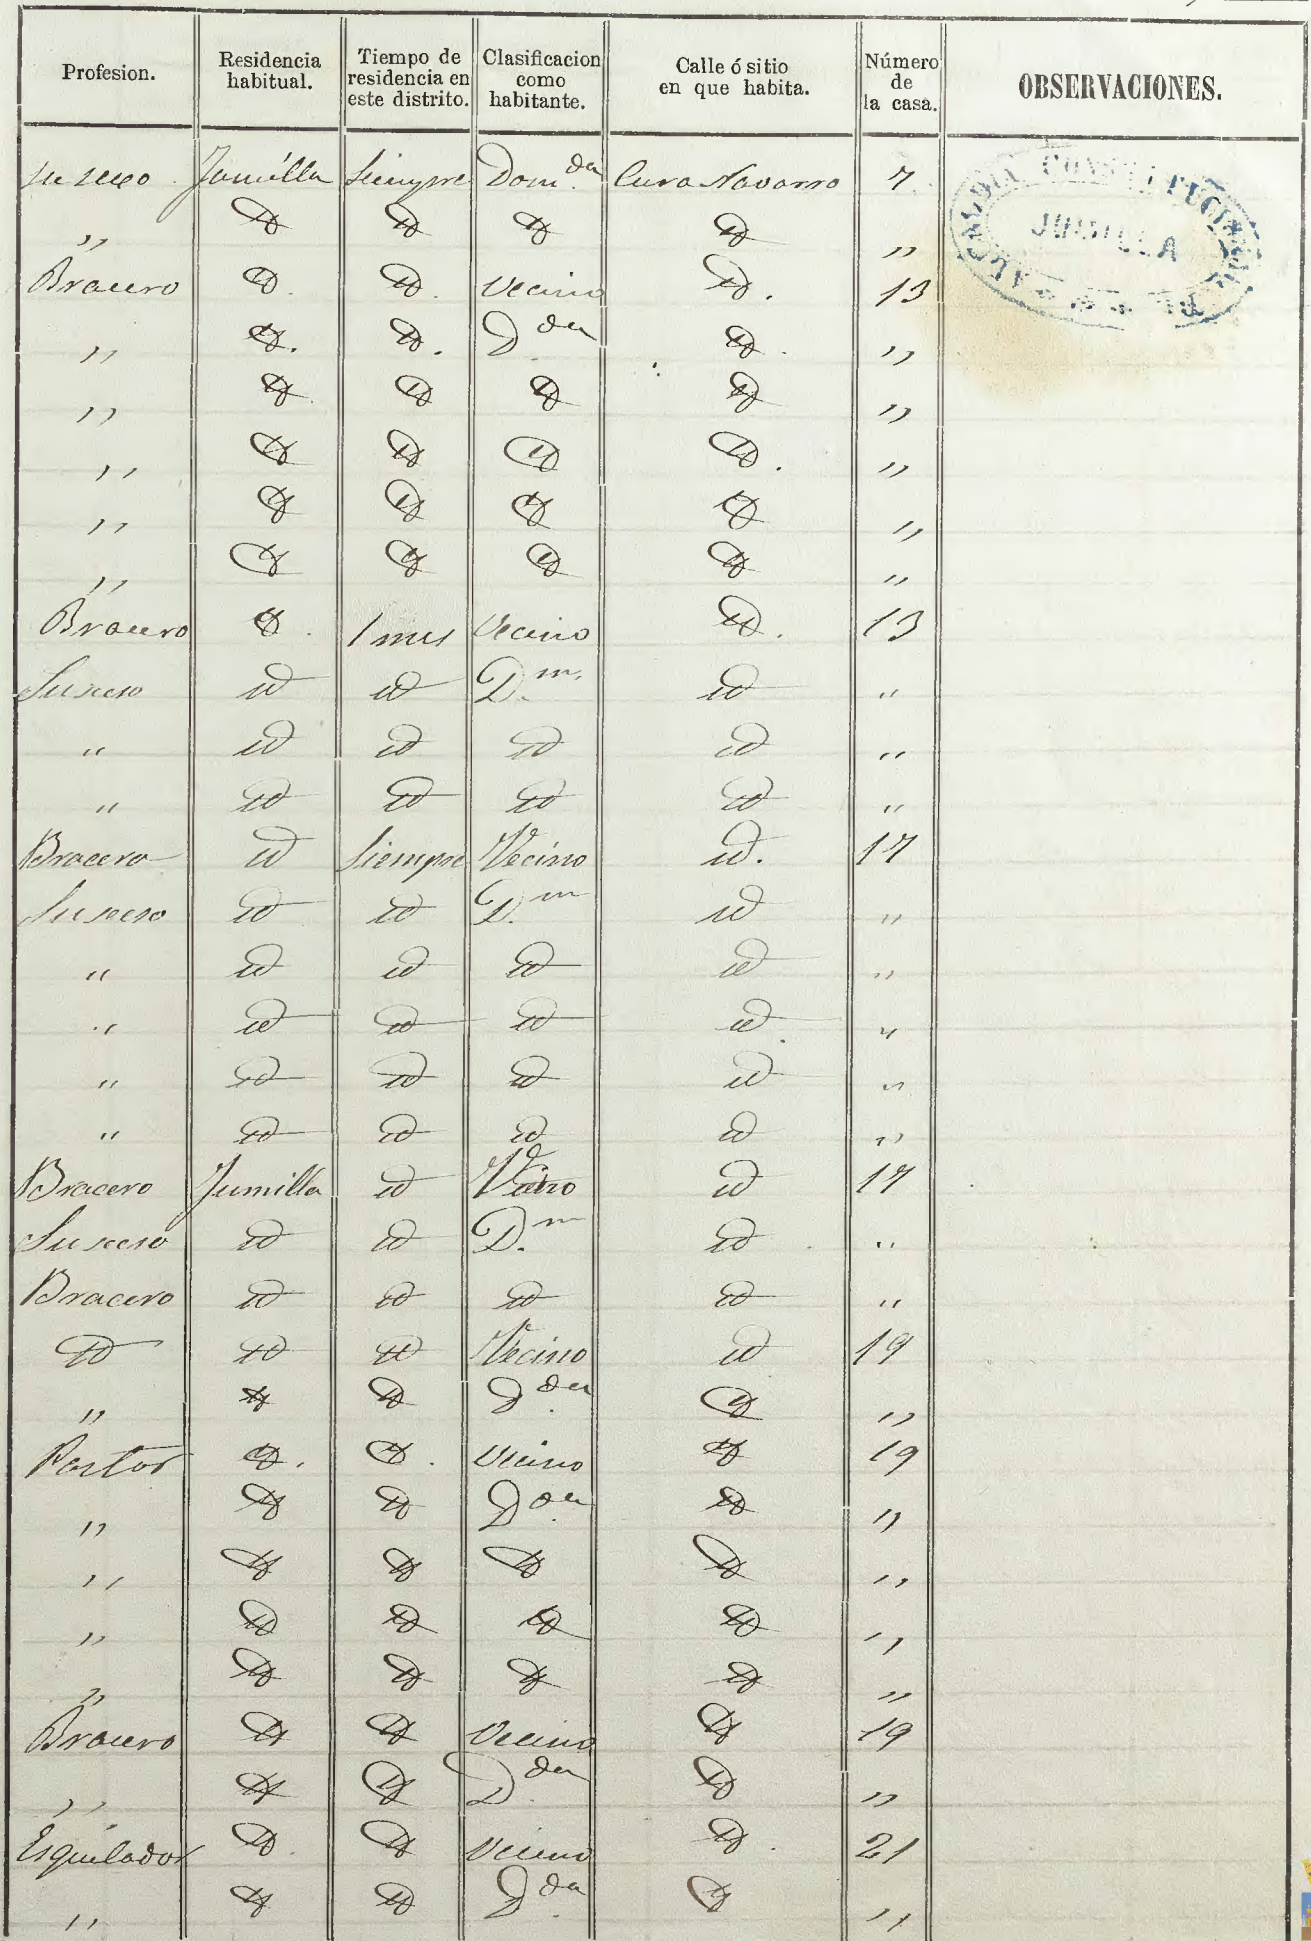 Profesion. | Residencia habitual. | Tiempo de residencia en este distrito. | Clasificacion como habitante. | Calle ó sitio en que habita. | Número de la casa. | OBSERVACIONES.
Su sexo | Jumilla | Siempre | Dom.da | Cura Navarro | 7
" | id | id | id | id | "
Bracero | id. | id. | Vecino | id. | 13
" | id. | id. | D.da | id. | "
" | id. | id | id | id | "
" | id | id | id | id. | "
" | id | id | id | id | "
" | id | id | id | id | "
Bracero | id. | 1 mes | Vecino | id. | 13
Su sexo | id | id | D.m. | id | "
" | id | id | id | id | "
" | id | id | id | id | "
Bracero | id | Siempre | Vecino | id. | 17
Su sexo | id | id | D.m | id | "
" | id | id | id | id | "
" | id | id | id | id | "
" | id | id | id | id | "
" | id | id | id | id | "
Bracero | Jumilla | id | Vecino | id | 17
Su sexo | id | id | D.m | id | "
Bracero | id | id | id | id | "
id | id | id | Vecino | id | 19
" | id | id | D.da | id | "
Pastor | id. | id. | Vecino | id | 19
" | id | id | D.da | id | "
" | id | id | id | id | "
" | id | id | id | id | "
" | id | id | id | id | "
Bracero | id | id | Vecino | id | 19
" | id | id | D.da | id | "
Esquilador | id. | id | Vecino | id. | 21
" | id | id | D.da | id | "
ALCALDIA CONSTITUCIONAL
JUMILLA